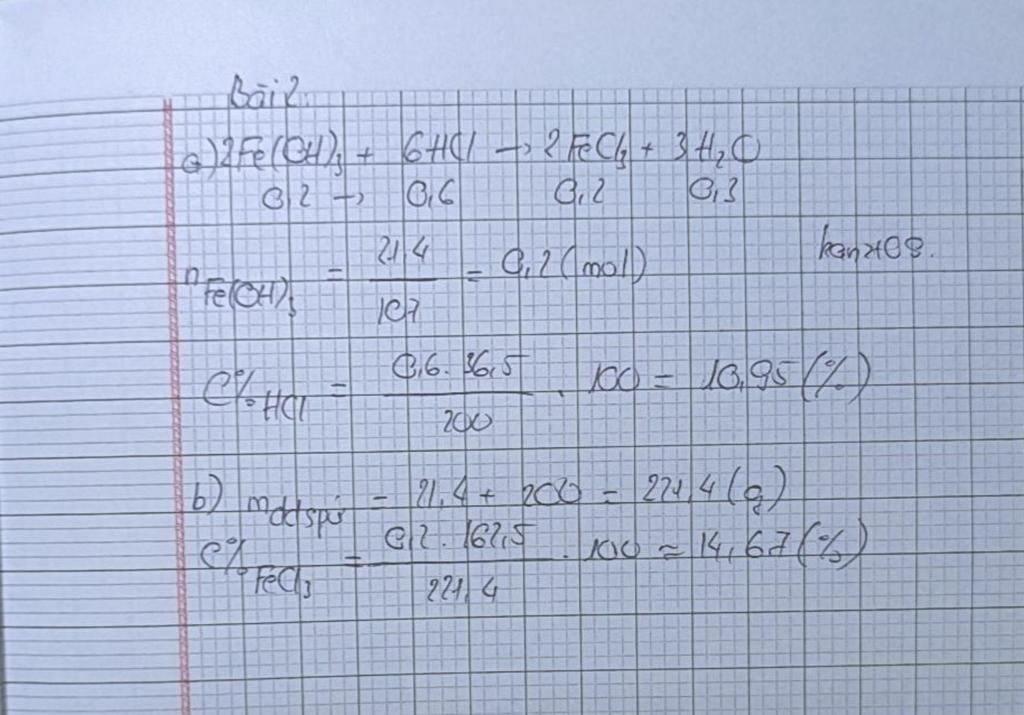 Bài 2
a) 2Fe(OH)3 + 6HCl → 2FeCl3 + 3H2O
0,2 → 0,6 0,2 0,3
nFe(OH)3 = 21,4/107 = 0,2 (mol)
C%HCl = 0,6.36,5/200 . 100 = 10,95 (%)
b) mddspứ = 21,4 + 200 = 221,4 (g)
C%FeCl3 = 0,2.162,5/221,4 . 100 ≈ 14,67 (%)